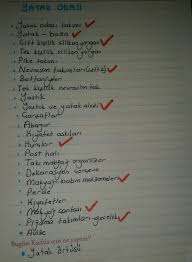 YATAK ODASI
Yatak odası takımı
Yatak - baza
Çift kişilik silikon yorgan
Tek kişilik silikon yorgan
Pike takımı
Nevresim takımları
Battaniyeler
Tek kişilik nevresim tak
Yastık
Yastık ve yatak alezi
Çarşaflar
Abajur
Kıyafet askıları
Hurçlar
Post halı
Takı makyaj organizer
Dekorasyon çerçeve
Makyaj bakım malzemeleri
Perde
Kıyafetler
Makyaj çantası
Pijama takımları gecelik
Avize
Bugün Kadas için ne yaptın?
Yatak örtüsü